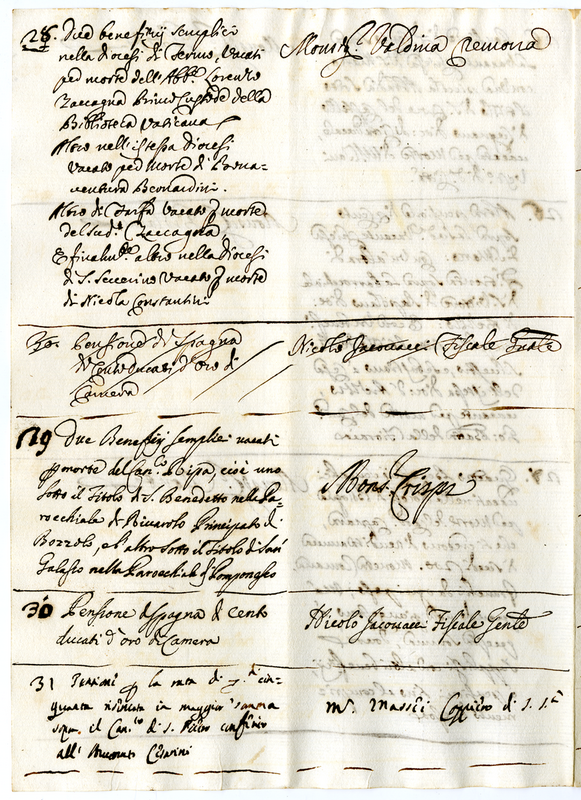 28. Due benefitij semplici
nella diocesi di Fermo, vacati
per morte dell'Abb.e Lorenzo
Zaccagna Primo Custode della
Biblioteca Vaticana
Altro nell'istessa diocesi
vacato per morte di Bona=
ventura Bernardini.
Altro di Farfa vacato p morte
del Sud.o Zaccagna
E finalm.te altro nella diocesi
di S. Severino vacato p morte
di Nicola Constantini
Mons.r Valdina Cremona
30. Pensione di Spagna
di Cento ducati d'oro di
Camera
Nicolò Jacovacci Fiscale Gnãle
29 Due Beneficij semplici vacati
p morte del Can.co Ripa, cioè uno
sotto il Titolo di S. Benedetto nella Pa=
rocchiale di Rivarolo Principato di
Bozzolo, e l'altro sotto il Titolo di San
nella Parocchiale di Pomponesco
Mons. Crispi
30 Pensione di Spagna di cento
ducati d'oro di Camera
Nicolò Jacovacci Fiscale Gen̄le
31 Pensione p la rata di cin=
quanta in maggior somma
sopra il Can.to di S. Pietro
all' Cesarini
M.r Massei Coppiero di S. S.tà